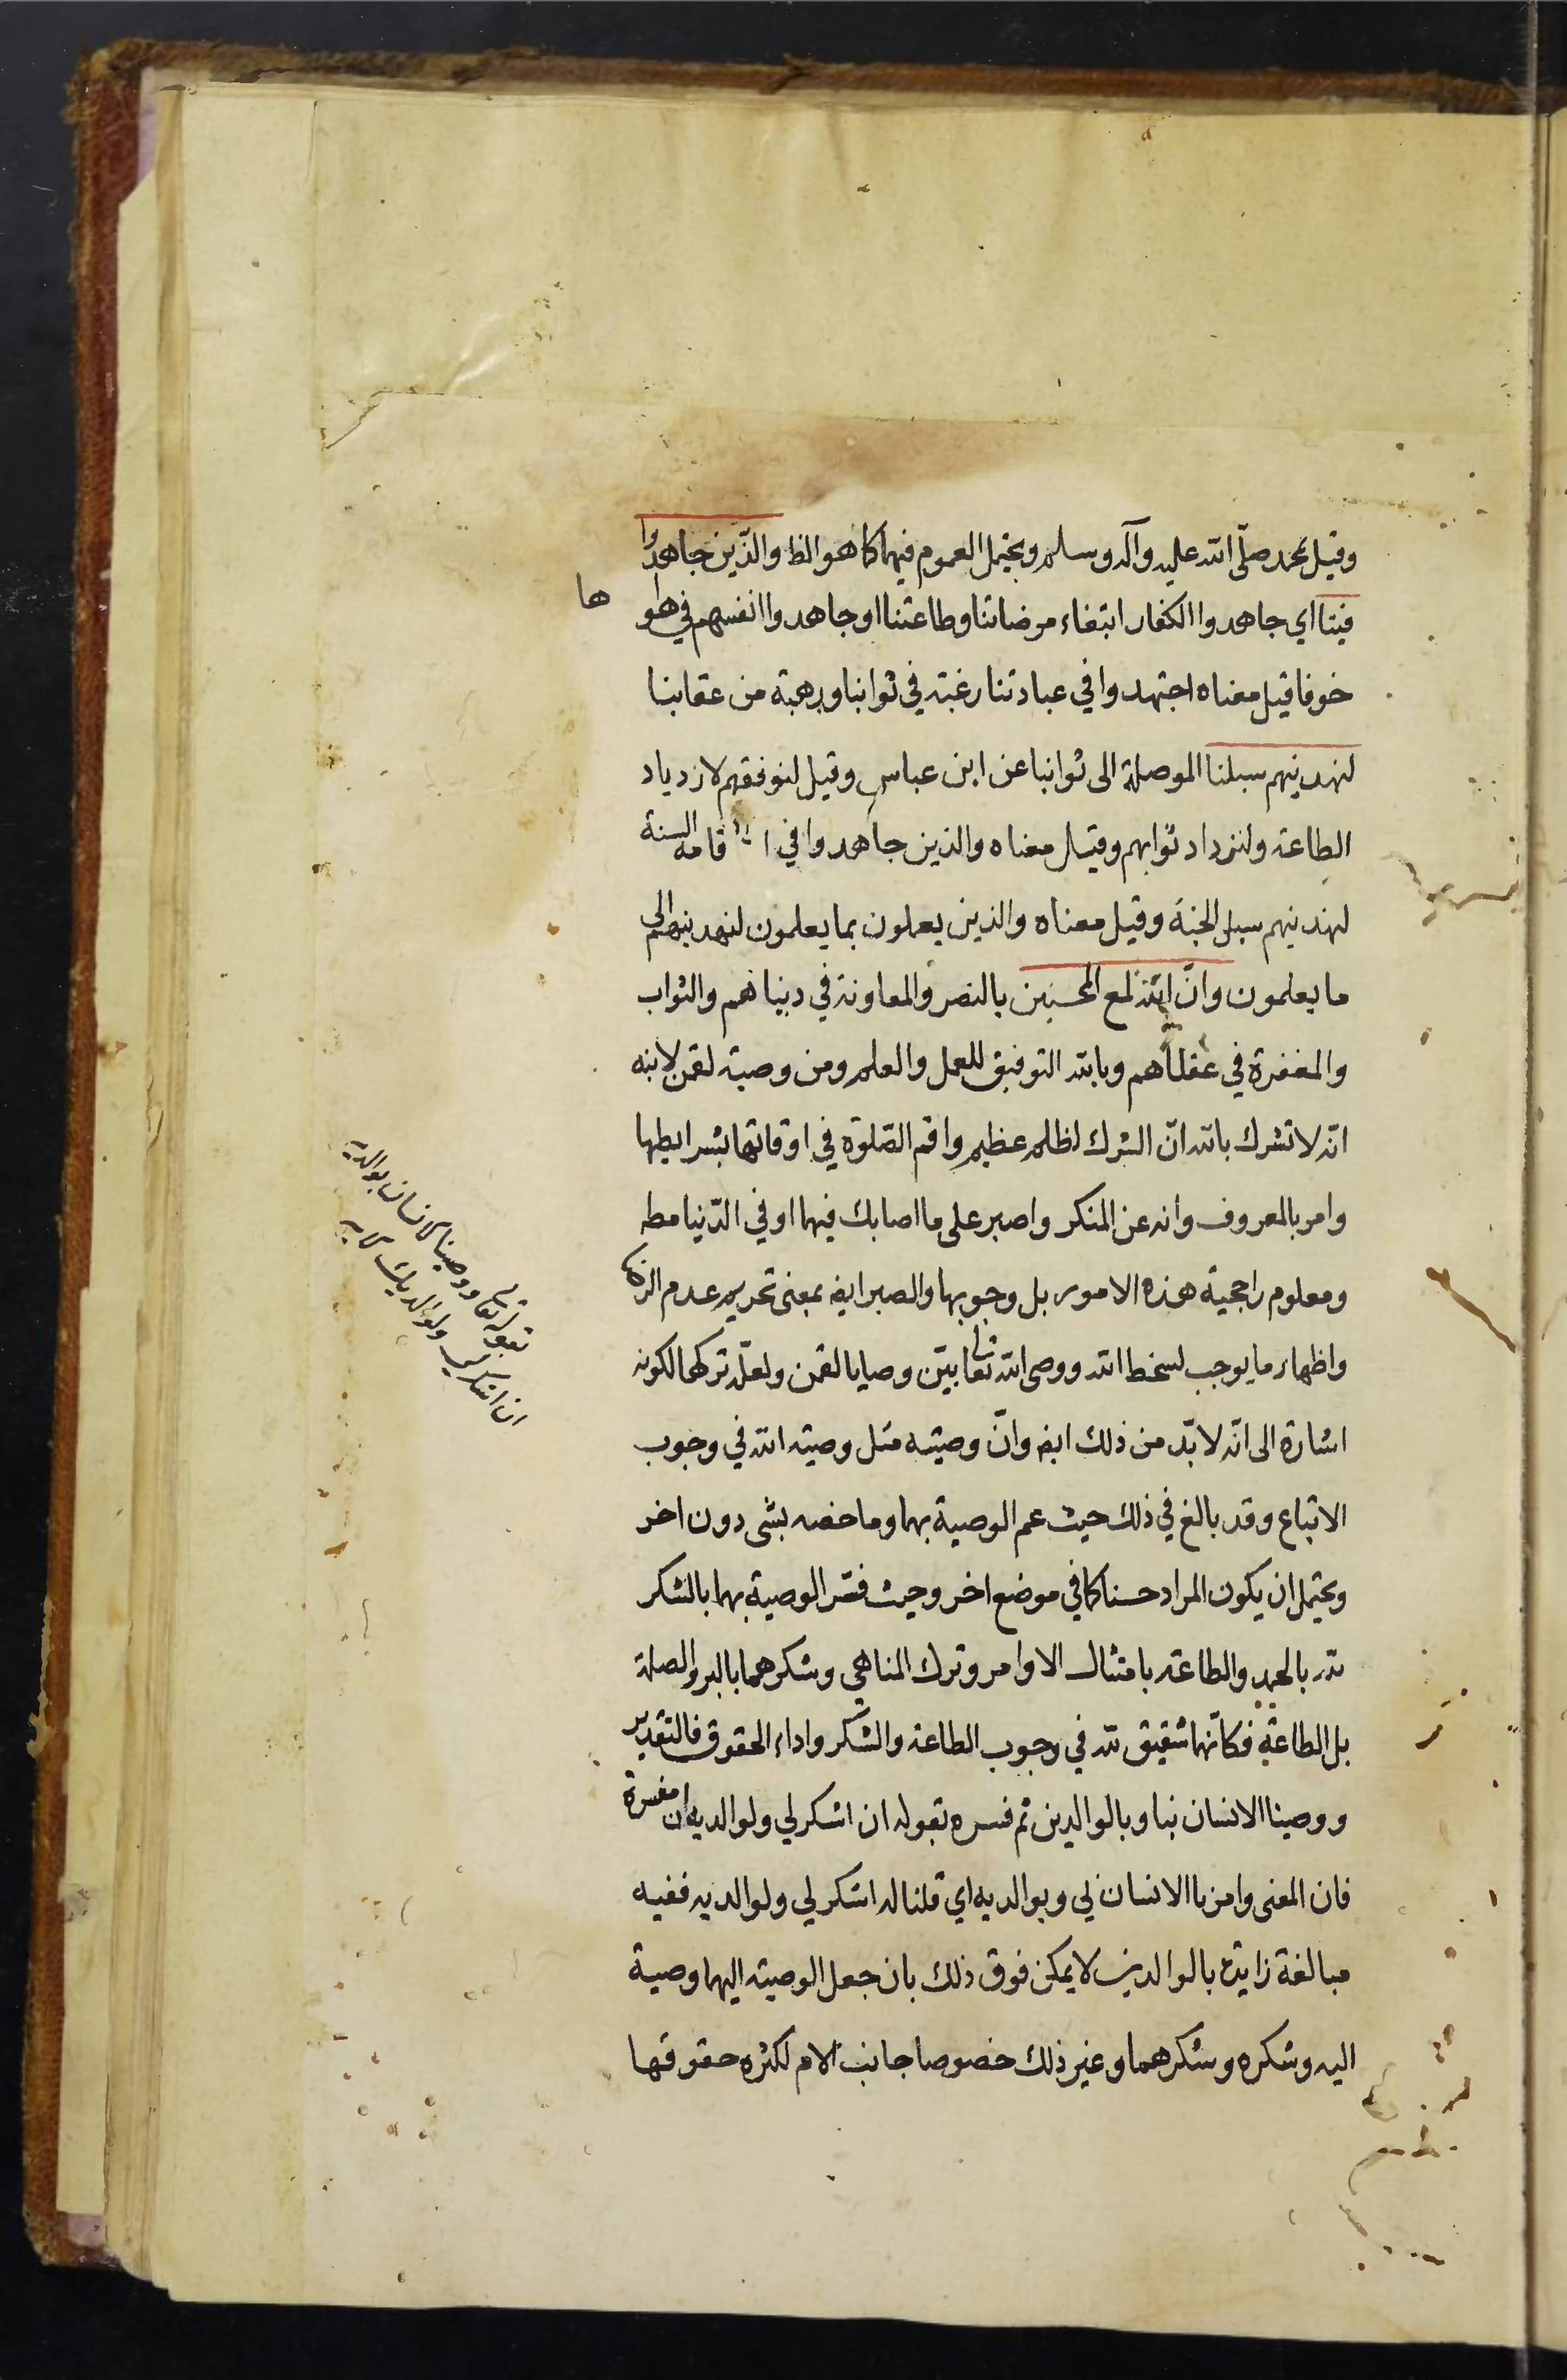 وقيل بمحمد صلّى الله عليه وآله وسلم ويحتمل العموم فيهما كما هو الظ والذّين جاهدوا
فينا اي جاهدوا الكفار ابتغاء مرضاتنا وطاعتنا او جاهدوا انفسهم في هوا
ها
خوفا قيل معناه اجتهدوا في عبادتنا رغبة في ثوابنا ورهبة من عقابنا
لنهدينهم سبلنا الموصلة الى ثوابنا عن ابن عباس وقيل لنوفقهم لازدياد
الطاعة ولنزداد ثوابهم وقيل معناه والذين جاهدوا في اقامه السنة
لنهدينهم سبل الجنة وقيل معناه والذين يعملون بما يعلمون لنهدينهم الى
ما يعلمون وانّ الله لمع المحسنين بالنصر والمعاونة في دنياهم والثواب
والمغفرة في عقباهم وبالله التوفيق للعمل والعلم ومن وصية لقمن لابنه
انّه لا تشرك بالله انّ الشرك لظلم عظيم واقم الصّلوة في اوقاتها بشرايطها
وامر بالمعروف وانه عن المنكر واصبر على ما اصابك فيهما او في الدّنيا مطه
ومعلوم راجحية هذه الامور بل وجوبها والصبر ايضه بمعنى تحريم عدم الرضا
واظهار ما يوجب لسخط الله ووصى الله تعالى بين وصايا لقمن ولعلّ تركها لكونه
اشارة الى انّه لا بدّ من ذلك ايضه وانّ وصيته مثل وصيته الله في وجوب
الاتباع وقد بالغ في ذلك حيث عم الوصية بهما وما خصه بشئ دون اخر
ويحتمل ان يكون المراد حسنا كما في موضع اخر وحيث فسّر الوصية بهما بالشكر
لله بالحمد والطاعة بامتثال الاوامر وترك المناهي وشكرهما بالبر والصلة
بل الطاعة فكانّهما شقيق لله في وجوب الطاعة والشكر واداء الحقوق فالتقدير
ووصينا الانسان بنا وبالوالدين ثم فسره بقوله ان اشكر لي ولوالديه ان مفسرة
فان المعنى وامرنا الانسان لي وبوالديه اي قلنا له اشكر لي ولوالديه ففيه
مبالغة زايدة بالوالدين لا يمكن فوق ذلك بان جعل الوصية اليهما وصية
اليه وشكره وشكرهما وغير ذلك خصوصا جانب الام لكثره حقوقها
بقوله تعا ووصينا الانسان بوالديه
ان اشكر لي ولوالديك الايه